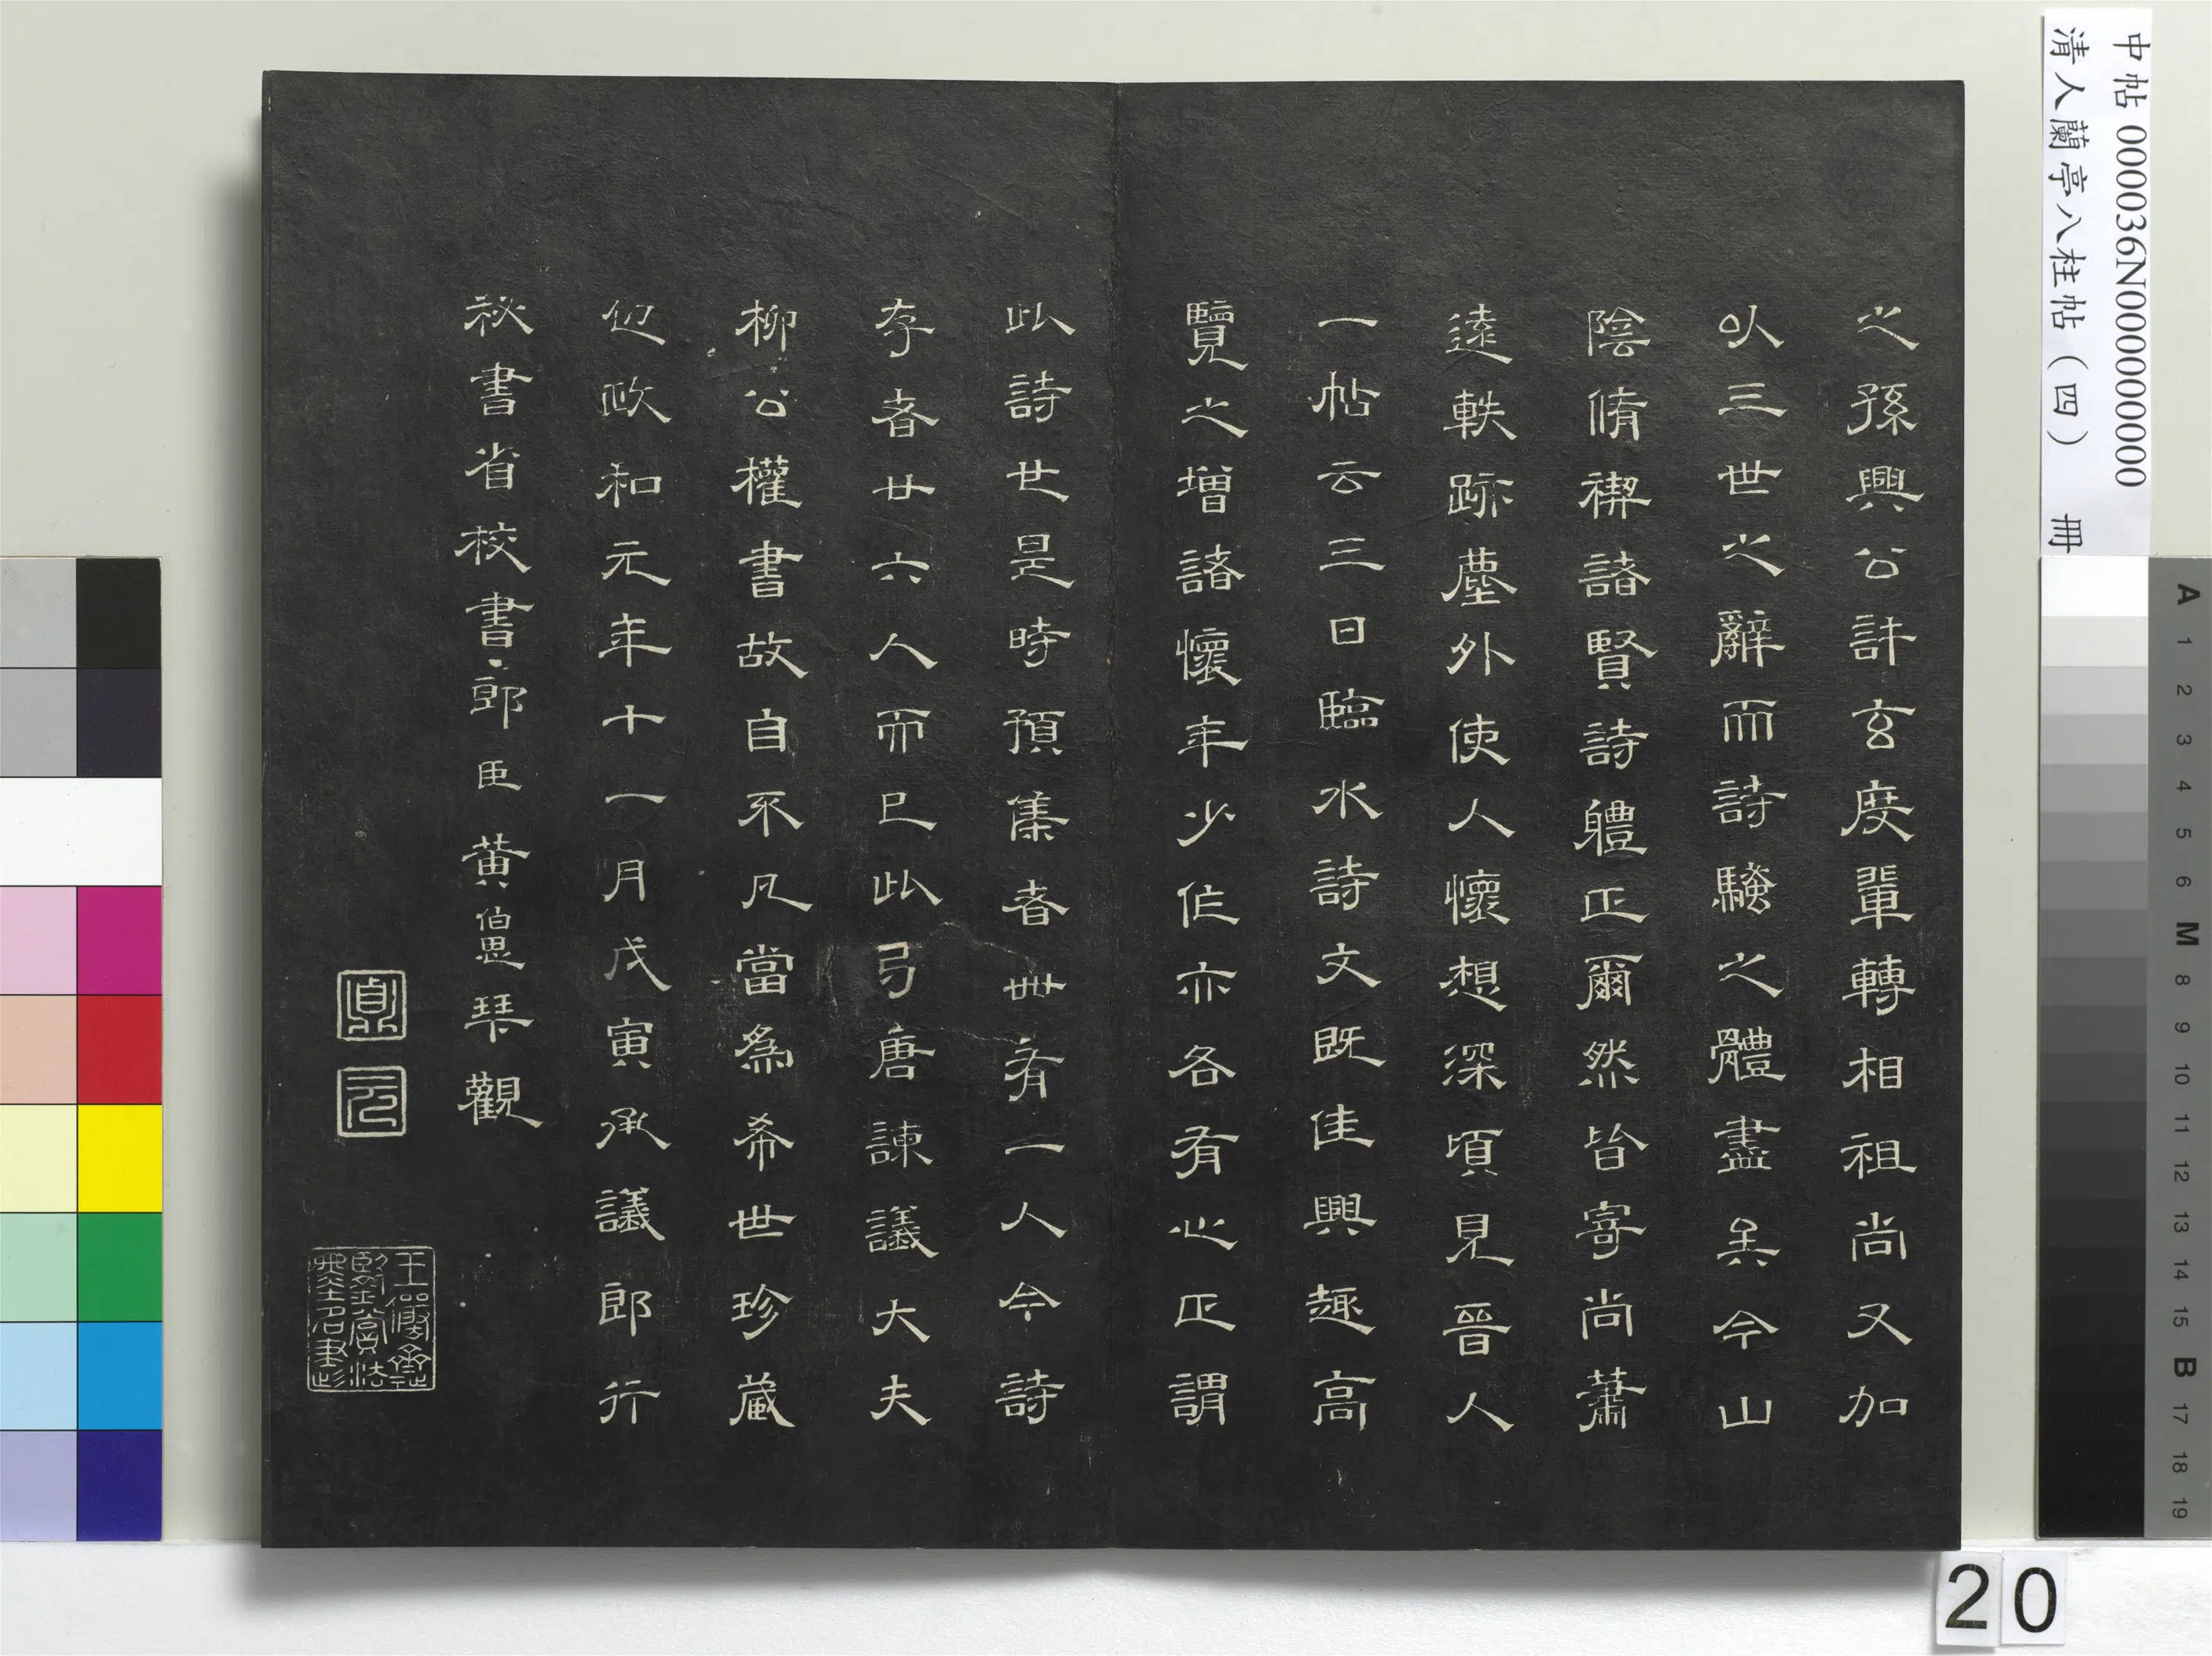 之孫興公許玄度輩轉相祖尚又加
以三世之辭而詩騷之體盡矣今山
陰脩禊諸賢詩軆正爾然皆寄尚蕭
遠軼跡塵外使人懷想深頃見晉人
一帖云三日臨水詩文既佳興趣高
覽之增諸懷年少作亦各有心正謂
此詩也是時預集者卌有一人今詩
存者廿六人而已此弓唐諫議大夫
柳公權書故自不凡當為希世珍藏
也政和元年十一月戊寅承議郎行
祕書省校書郎臣黃伯思琴觀
鼎
元
王儼齋
鑒賞法
書名
中帖 000036N000000000
清人蘭亭八柱帖（四） 冊
A 1 2 3 4 5 6 M 8 9 10 11 12 13 14 15 B 17 18 19
20